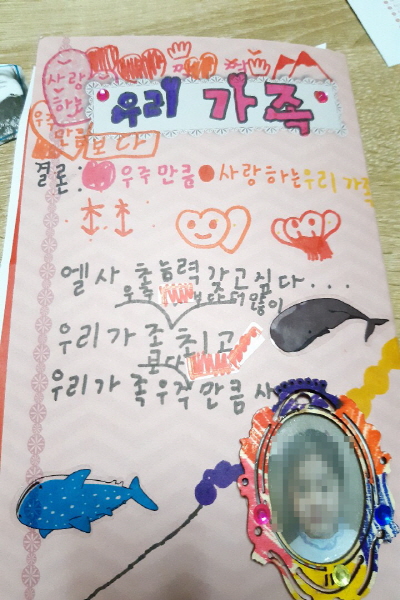 사랑
하는
우주
만큼보다
우리 가족
결론: 우주만큼 사랑하는우리 가족
엘사 초능력 갖고싶다...
보다더많이
우리가 족 최고
보다
우리가 족우주 만큼 사